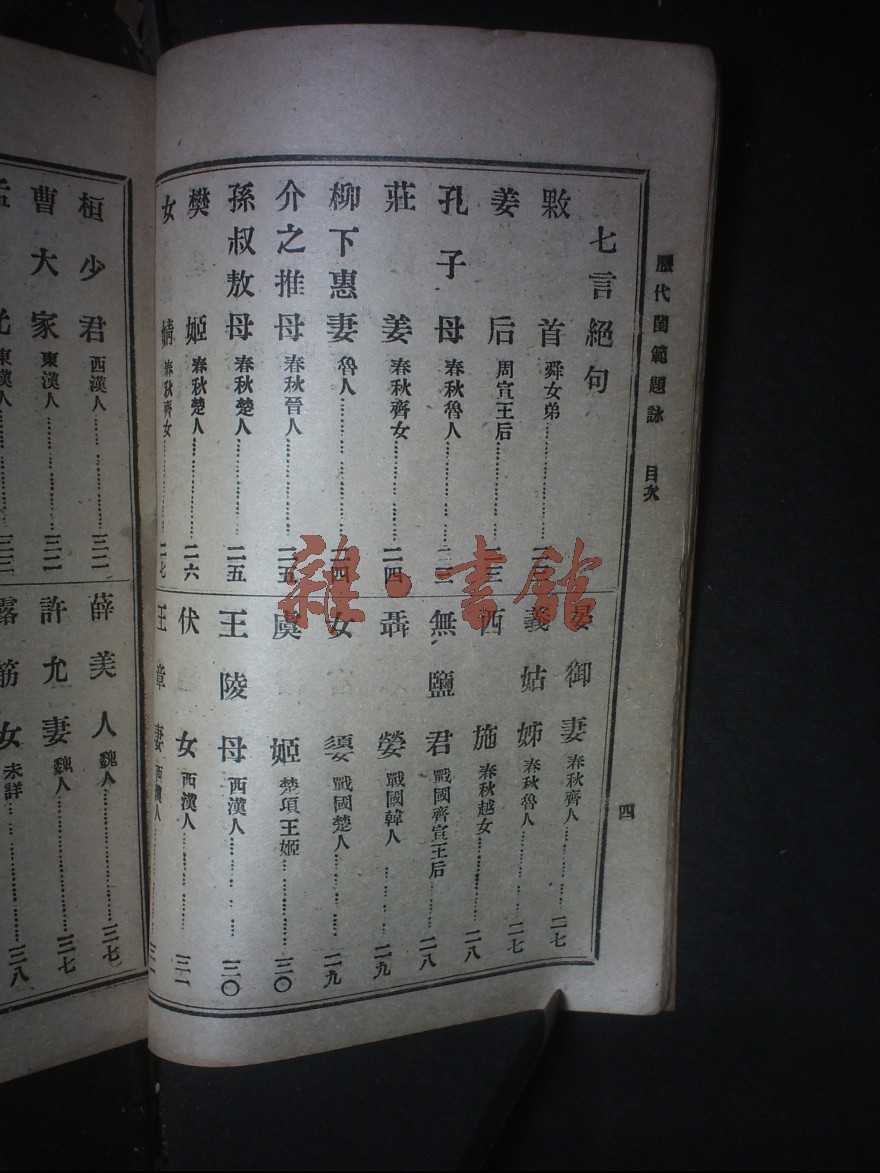 歷代閨範題詠 目次
四
七言絕句
敤首 舜女弟
姜后 周宣王后
孔子母 春秋魯人
莊姜 春秋齊女 二四
柳下惠妻 魯人 二四
介之推母 春秋晉人 二五
孫叔敖母 春秋楚人 二五
樊姬 春秋楚人 二六
女婧 春秋齊女 二七
晏御妻 春秋齊人 二七
義姑姊 春秋魯人 二七
西施 春秋越女 二八
無鹽君 戰國齊宣王后 二八
聶嫈 戰國韓人 二九
女嬃 戰國楚人 二九
虞姬 楚項王姬 三〇
王陵母 西漢人 三〇
伏女 西漢人 三一
王章妻 西漢人
桓少君 西漢人 三二
曹大家 東漢人 三二
光 東漢人 三三
薛美人 魏人 三七
許允妻 魏人 三七
露筋女 未詳 三八
雜·書館